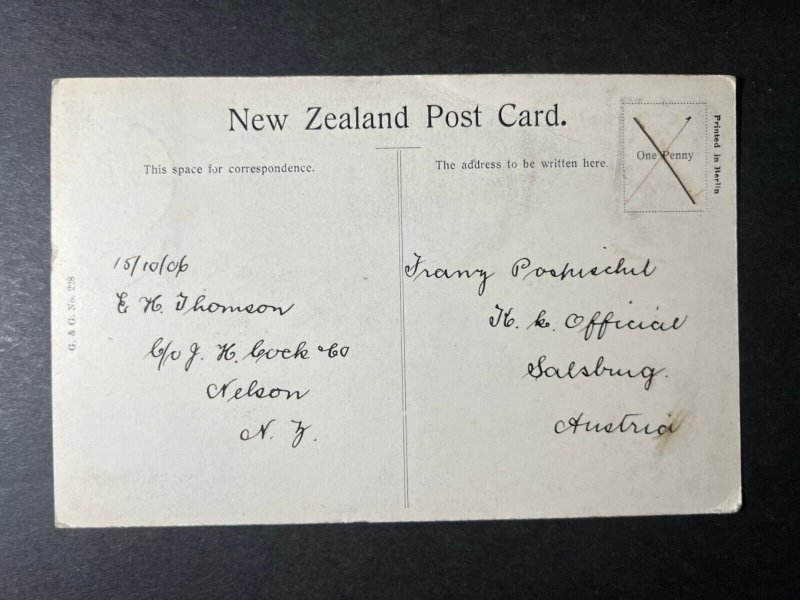 New Zealand Post Card.
This space for correspondence.
The address to be written here.
One Penny
Printed in Berlin
G. & G. No. 228
15/10/06
E H. Thomson
C/o J. H. Cock & Co
Nelson
N. Z.
Franz Pospischil
K. k. Official
Salsburg.
Austria